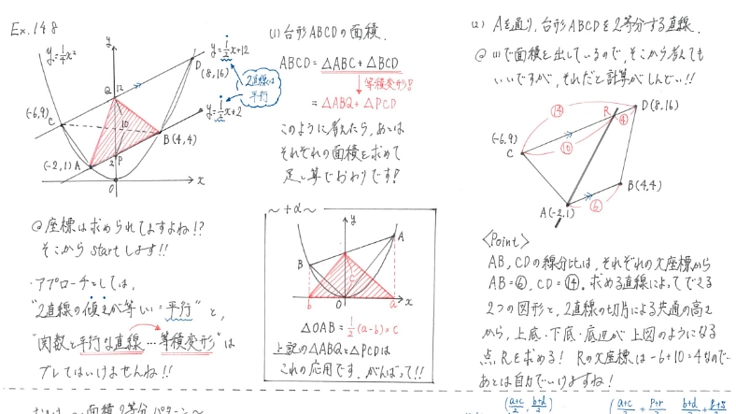 Ex.148
y=1/4x²
y=1/2x+12
D(8,16)
2直線は
平行
y=1/2x+2
(-6,9)
C
Q
12
10
B(4,4)
(-2,1)
A
2
P
O
x
y
@座標は求められてますよね!?
そこからstartします!!
・アプローチとしては、
"2直線の傾きが等しい=平行"と、
"関数と平行な直線…等積変形"は
ブレてはいけませんね!!
(1) 台形ABCDの面積.
ABCD = △ABC + △BCD
等積変形!!
= △ABQ + △PCD
このように考えたら、あとは
それぞれの面積を求めて
足し算でおわりです!
~+α~
y
A
B
C
b
O
a
x
△OAB = 1/2(a-b)×C
上記の△ABQと△PCDは
これの応用です、がんばって!!
(2) Aを通り、台形ABCDを2等分する直線.
@(1)で面積を出しているので、そこから考えても
いいですが、それだと計算がしんどい!!
⑭
R
④
D(8,16)
(-6,9)
C
⑩
B(4,4)
A(-2,1)
⑥
<Point>
AB, CDの線分比は、それぞれのx座標から
AB=⑥, CD=⑭. 求める直線によってできる
2つの図形と、2直線の切片による共通の高さ
から、上底・下底・底辺が上図のようになる
点Rを求める! Rのx座標は-6+10=4なので、
あとは自力でいけますね!